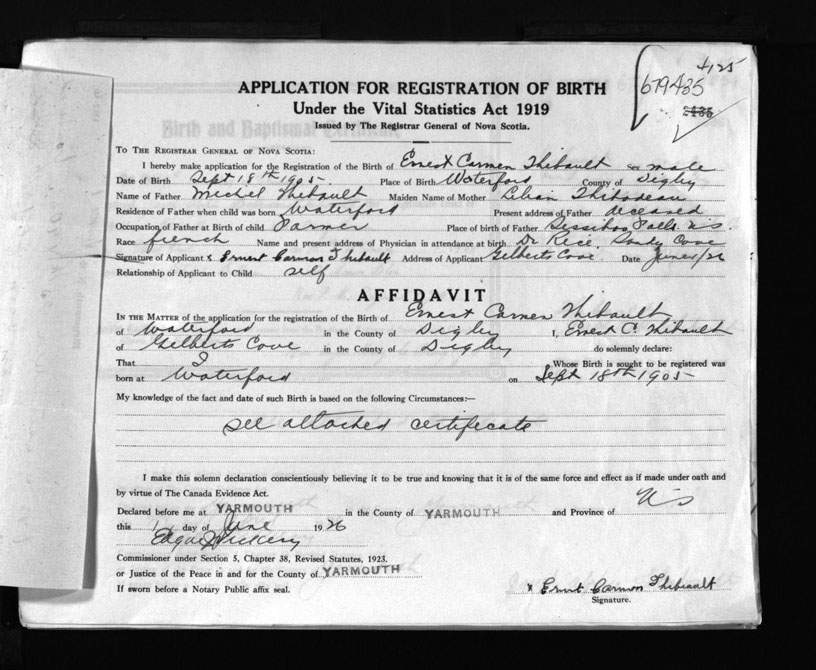 4125
679435
2435
APPLICATION FOR REGISTRATION OF BIRTH
Under the Vital Statistics Act 1919
Issued by The Registrar General of Nova Scotia.
TO THE REGISTRAR GENERAL OF NOVA SCOTIA:
I hereby make application for the Registration of the Birth of Ernest Carmen Thibault Sex male
Date of Birth Sept 18th 1905 Place of Birth Waterford County of Digby
Name of Father Michel Thibault Maiden Name of Mother Lilian Thibodeau
Residence of Father when child was born Waterford Present address of Father deceased
Occupation of Father at Birth of child Farmer Place of birth of Father Sissiboo Falls N.S.
Race french Name and present address of Physician in attendance at birth Dr Rice, Sandy Cove
Signature of Applicant x Ernest Carmon Thibault Address of Applicant Gilberts Cove. Date June 1/26
Relationship of Applicant to Child self
AFFIDAVIT
IN THE MATTER of the application for the registration of the Birth of Ernest Carmen Thibault
of Waterford in the County of Digby I, Ernest C. Thibault
of Gilberts Cove in the County of Digby do solemnly declare:
That I Whose Birth is sought to be registered was
born at Waterford on Sept 18th 1905
My knowledge of the fact and date of such Birth is based on the following Circumstances:—
see attached certificate
I make this solemn declaration conscientiously believing it to be true and knowing that it is of the same force and effect as if made under oath and
by virtue of The Canada Evidence Act.
Declared before me at YARMOUTH in the County of YARMOUTH and Province of N S
this 1 day of June 1926
Commissioner under Section 5, Chapter 38, Revised Statutes, 1923.
or Justice of the Peace in and for the County of YARMOUTH
If sworn before a Notary Public affix seal.
x Ernest Carmon Thibeault
Signature.